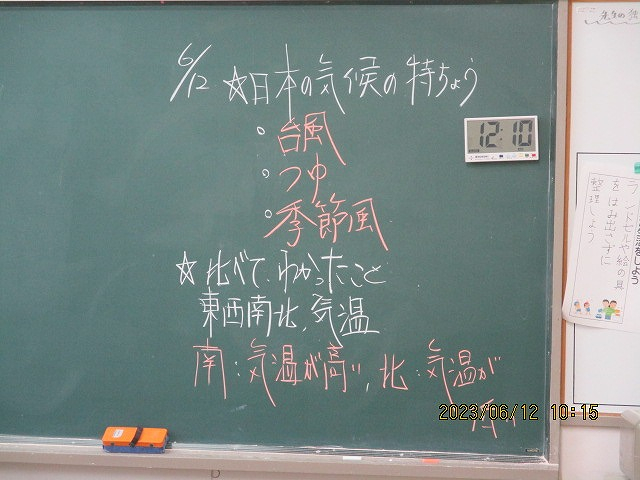 6/12 ☆日本の気候の特ちょう
。台風
。つゆ
。季節風
☆比べて、わかったこと
東西南北、気温
南:気温が高い、北:気温が
12:10
2023/06/12 10:15
ランドセルや絵の具
をはみ出さずに
整理しよう